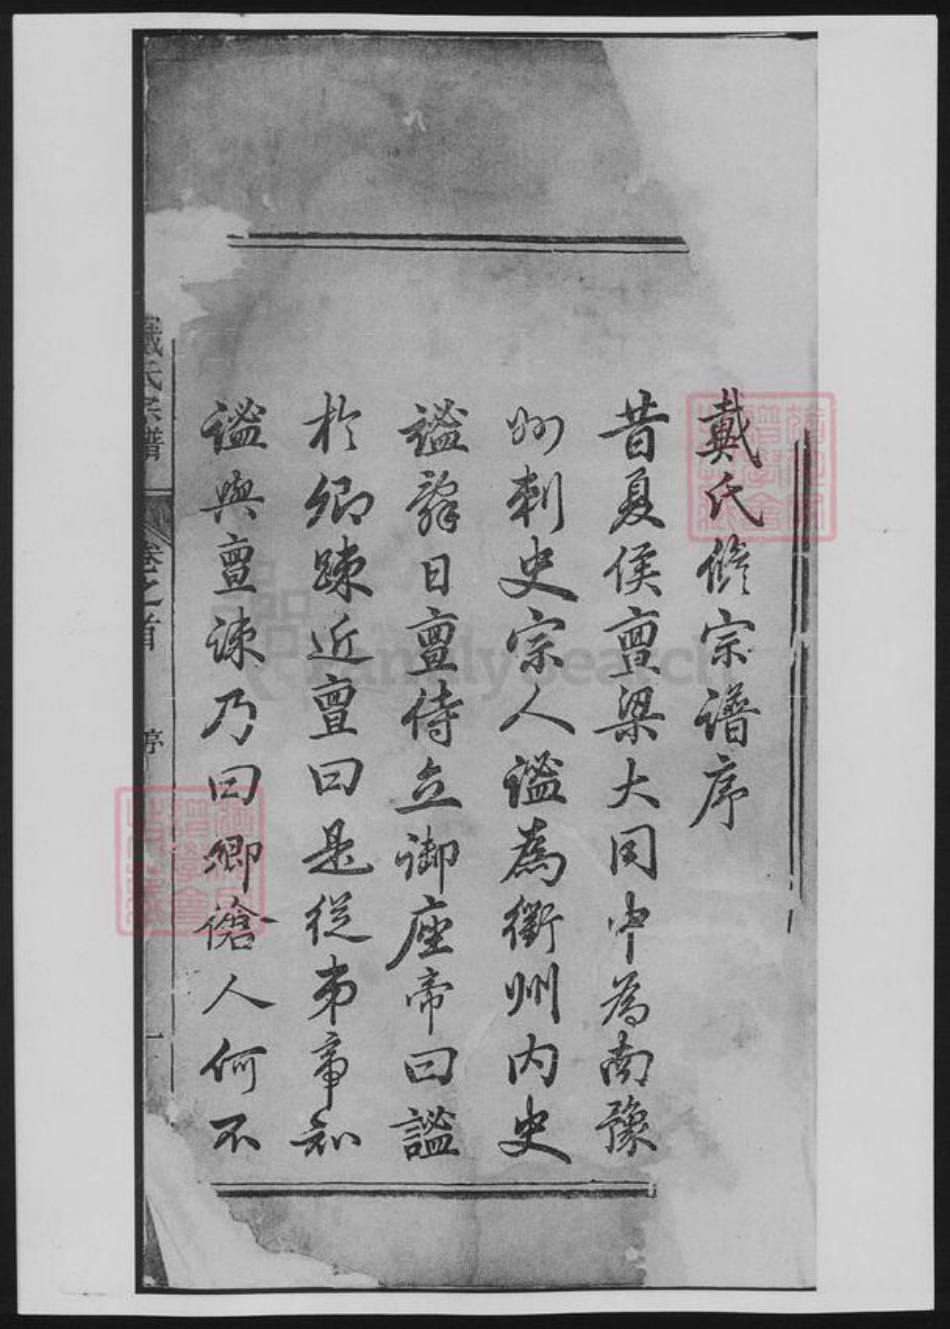 戴氏修宗譜序
昔夏侯亶梁大同中為南豫
州刺史宗人謐為衡州內史
謐辭日亶侍立御座帝曰謐
於卿踈近亶曰是從弟帝知
謐與亶踈乃曰卿傖人何不
戴氏宗譜 卷之首 序 一
FamilySearch